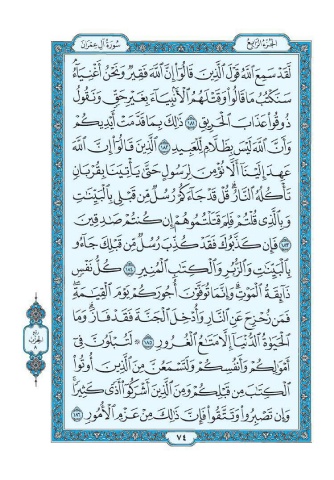 الجزء الرابع
سورة آل عمران
لَّقَدْ سَمِعَ ٱللَّهُ قَوْلَ ٱلَّذِينَ قَالُوٓا۟ إِنَّ ٱللَّهَ فَقِيرٌ وَنَحْنُ أَغْنِيَآءُ
سَنَكْتُبُ مَا قَالُوا۟ وَقَتْلَهُمُ ٱلْأَنۢبِيَآءَ بِغَيْرِ حَقٍّ وَنَقُولُ
ذُوقُوا۟ عَذَابَ ٱلْحَرِيقِ ١٨١ ذَٰلِكَ بِمَا قَدَّمَتْ أَيْدِيكُمْ
وَأَنَّ ٱللَّهَ لَيْسَ بِظَلَّامٍ لِّلْعَبِيدِ ١٨٢ ٱلَّذِينَ قَالُوٓا۟ إِنَّ ٱللَّهَ
عَهِدَ إِلَيْنَآ أَلَّا نُؤْمِنَ لِرَسُولٍ حَتَّىٰ يَأْتِيَنَا بِقُرْبَانٍ
تَأْكُلُهُ ٱلنَّارُ قُلْ قَدْ جَآءَكُمْ رُسُلٌ مِّن قَبْلِى بِٱلْبَيِّنَٰتِ
وَبِٱلَّذِى قُلْتُمْ فَلِمَ قَتَلْتُمُوهُمْ إِن كُنتُمْ صَٰدِقِينَ
١٨٣ فَإِن كَذَّبُوكَ فَقَدْ كُذِّبَ رُسُلٌ مِّن قَبْلِكَ جَآءُو
بِٱلْبَيِّنَٰتِ وَٱلزُّبُرِ وَٱلْكِتَٰبِ ٱلْمُنِيرِ ١٨٤ كُلُّ نَفْسٍ
ذَآئِقَةُ ٱلْمَوْتِ وَإِنَّمَا تُوَفَّوْنَ أُجُورَكُمْ يَوْمَ ٱلْقِيَٰمَةِ
فَمَن زُحْزِحَ عَنِ ٱلنَّارِ وَأُدْخِلَ ٱلْجَنَّةَ فَقَدْ فَازَ وَمَا
ٱلْحَيَوٰةُ ٱلدُّنْيَآ إِلَّا مَتَٰعُ ٱلْغُرُورِ ١٨٥ ۞ لَتُبْلَوُنَّ فِىٓ
أَمْوَٰلِكُمْ وَأَنفُسِكُمْ وَلَتَسْمَعُنَّ مِنَ ٱلَّذِينَ أُوتُوا۟
ٱلْكِتَٰبَ مِن قَبْلِكُمْ وَمِنَ ٱلَّذِينَ أَشْرَكُوٓا۟ أَذًى كَثِيرًا
وَإِن تَصْبِرُوا۟ وَتَتَّقُوا۟ فَإِنَّ ذَٰلِكَ مِنْ عَزْمِ ٱلْأُمُورِ ١٨٦
٧٤